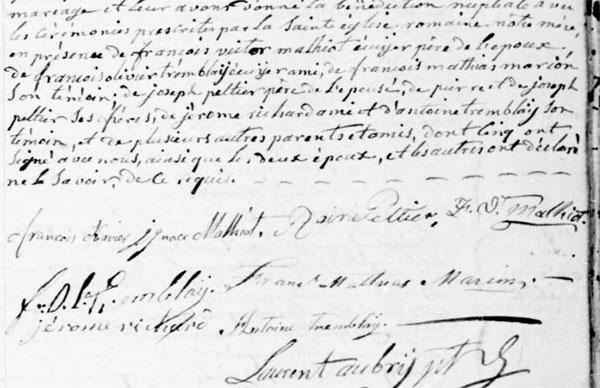 mariage et leur avons donné la bénédiction nuptiale avec
les cérémonies prescrites par la Sainte église romaine notre mère,
en présence de françois victor mathiot écuyer père de l'epoux,
de françois olivier tremblay écuyer ami, de françois mathias marion
son témoin, de joseph peltier père de l'epouse, de pierre et de joseph
peltier ses frères, de jérome richard ami et d'antoine tremblay son
témoin, et de plusieurs autres parents et amis, dont cinq ont
signé avec nous, ainsi que les deux époux, et les autres ont déclaré
ne le savoir, de ce requis.
françois Xavier ignace Malhiot. Peltier, F. V. Malhiot.
Tremblay. Franc Mathias Marion,
jérome richard Antoine tremblay.
Laurent aubry ptre